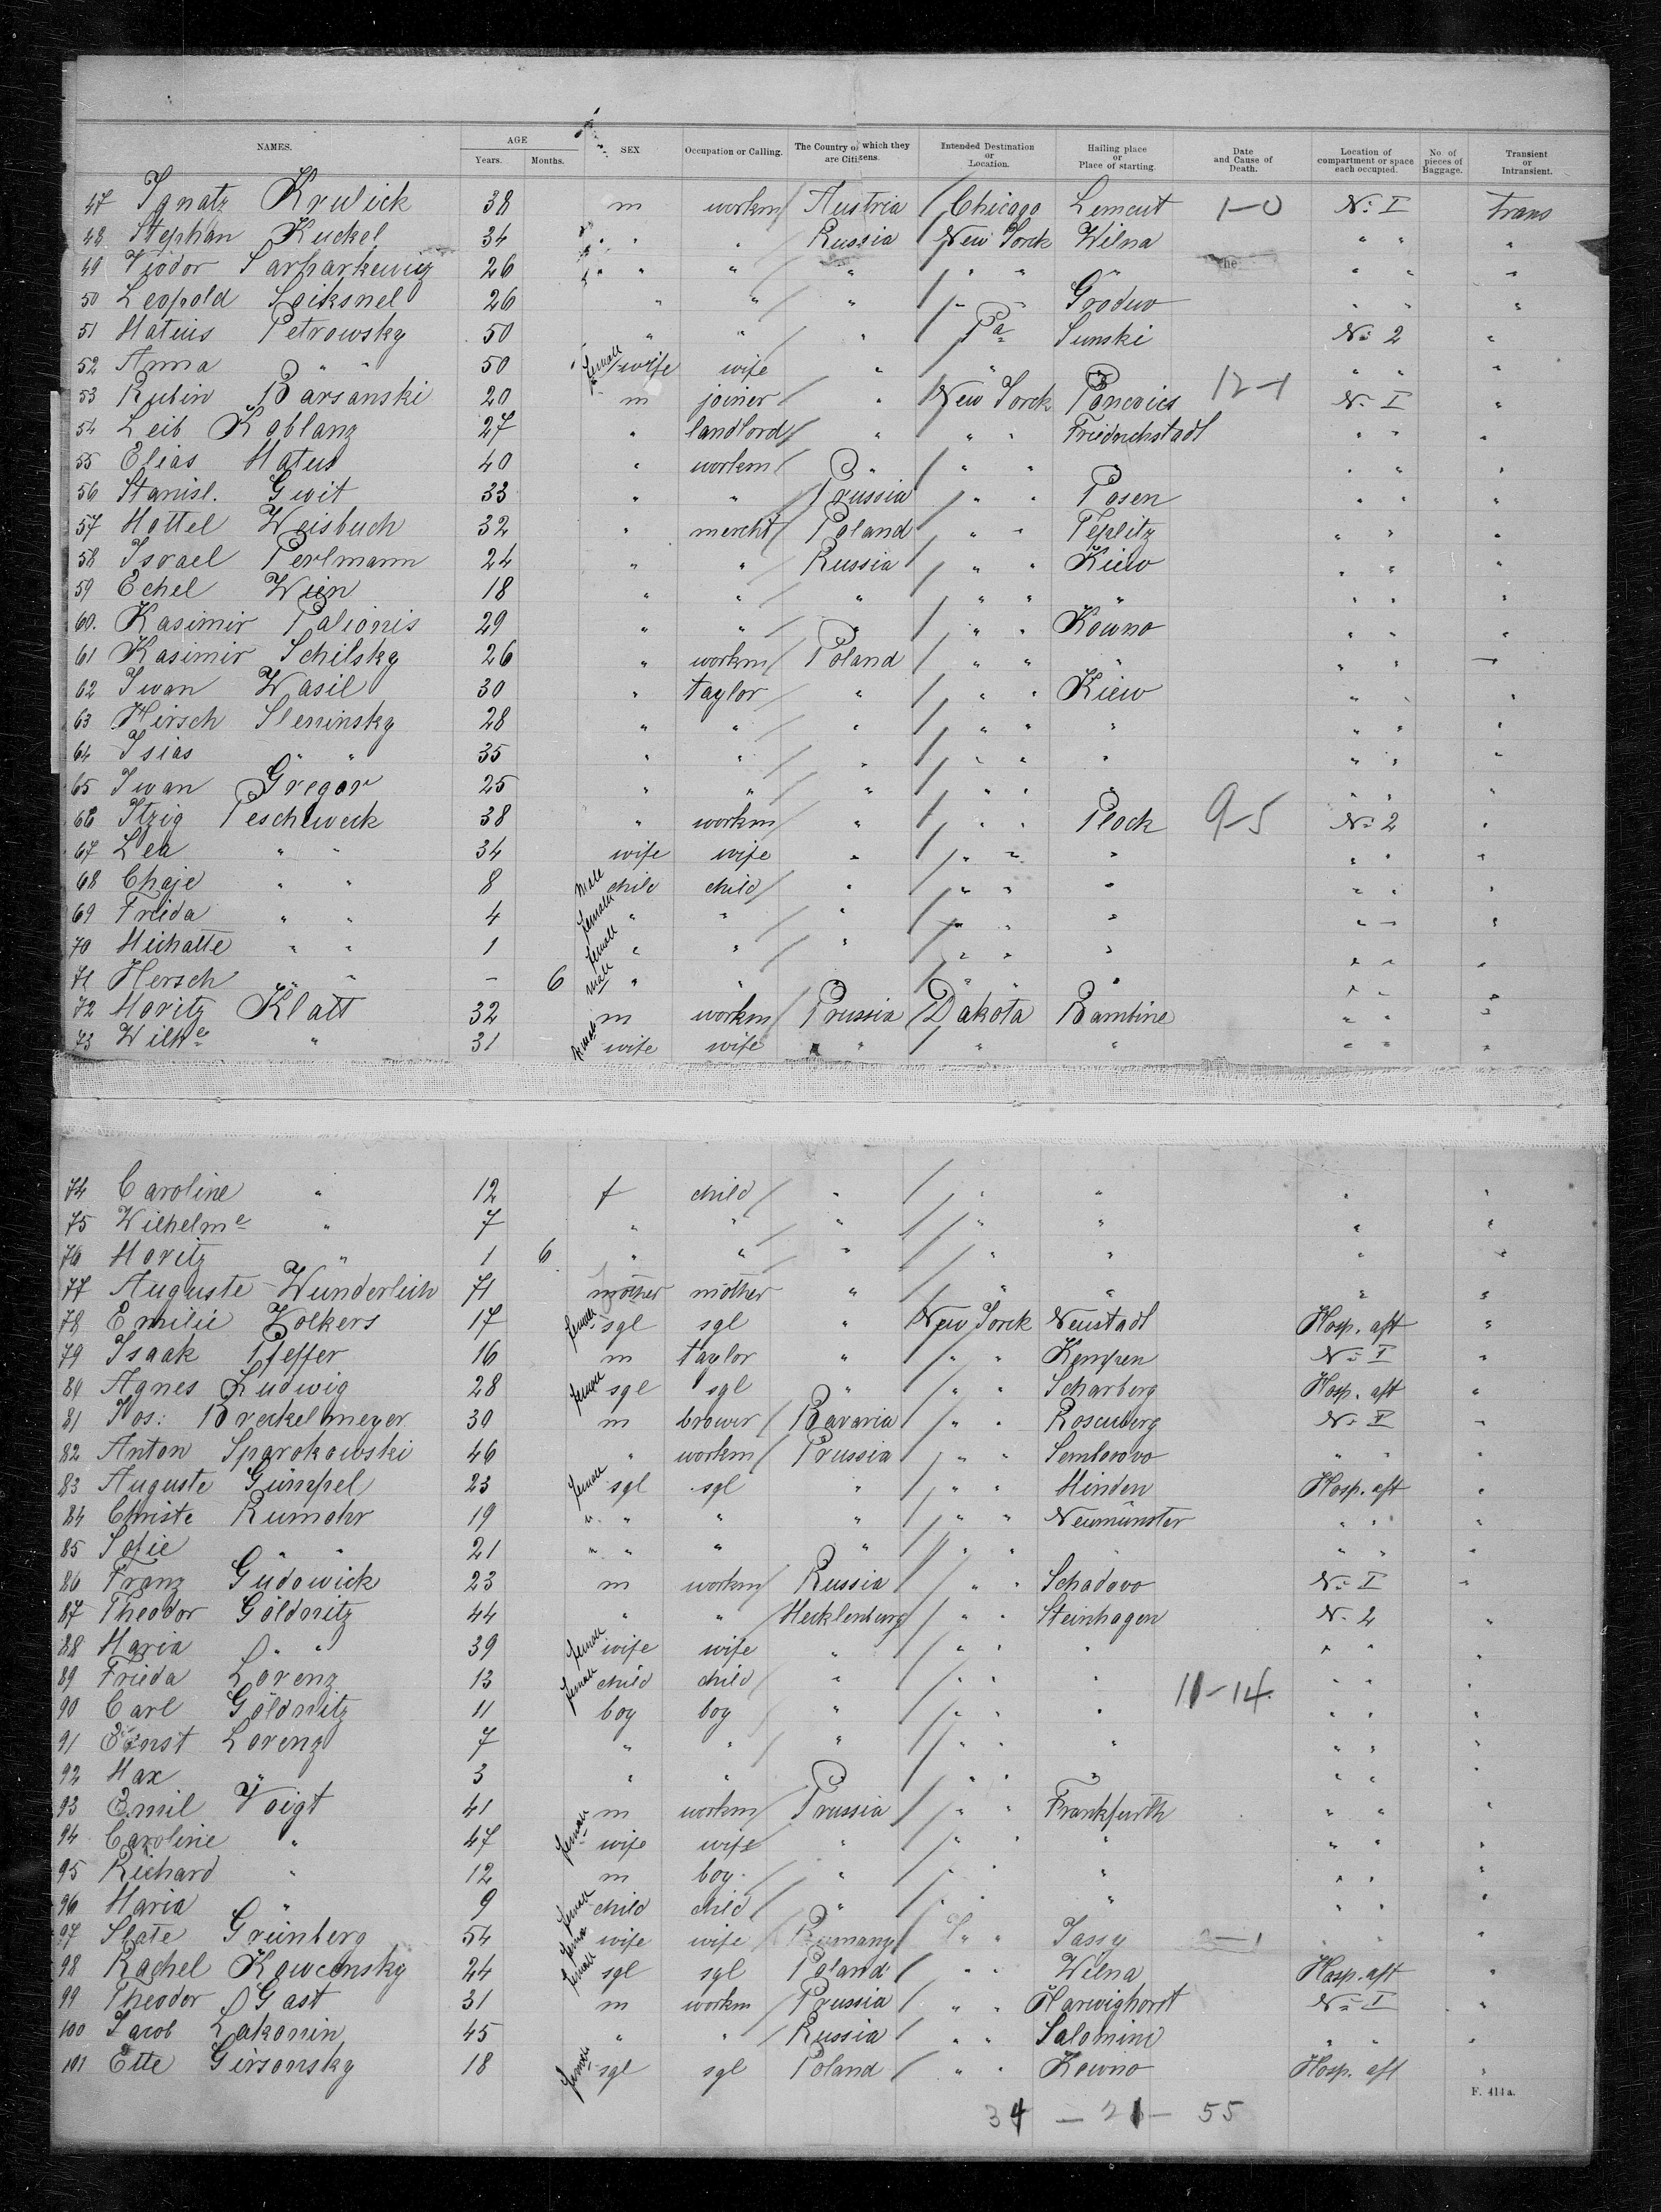 NAMES. AGE Years. Months. SEX Occupation or Calling. The Country of which they are Citizens. Intended Destination or Location. Hailing place or Place of starting. Date and Cause of Death. Location of compartment or space each occupied. No. of pieces of Baggage. Transient or Intransient.
47 Ignatz Krulick 38 m workm Austria Chicago Lemcut 1-0 No I trans
48 Stephan Kuckel 34 " " Russia New Yorck Wilna " " "
49 26 " " " " " " " " "
50 Leopold 26 " " " " " Grodno " " "
51 Mateus Petrowsky 50 " " " Pa Sunski No 2 "
52 Anna " " 50 female wife wife " " " " " "
53 Rubin Barsanski 20 m joiner " New Yorck 12-1 No I "
54 Leib Koblanz 27 " landlord " " " Friedrichstadt " " "
55 Elias Matus 40 " workm " " " " " " "
56 Stanisl. Gwit 33 " " Prussia " " Posen " " "
57 Mottel Weisbuch 32 " mercht Poland " " Teplitz " " "
58 Israel Perlmann 24 " " Russia " " Kiew " " "
59 Echel Wein 18 " " " " " " " " "
60. Kasimir Palionis 29 " " " " " Kowno " " "
61 Kasimir Schilsky 26 " workm Poland " " " " " "
62 Iwan Wasil 30 " taylor " " " Kiew " " "
63 Hirsch Sleninsky 28 " " " " " " " " "
64 Isias " " 35 " " " " " " " " "
65 Iwan Gregor 25 " " " " " " " " "
66 Itzig Peschlweck 38 " workm " " " Plock 9-5 No 2 "
67 Lea " " 34 wife wife " " " " " " "
68 Chaje " " 8 male child child " " " " " " "
69 Frieda " " 4 female " " " " " " " " "
70 " " 1 female " " " " " " " " "
71 Hersch " " - 6 male " " " " " " " " "
72 Moritz Klatt 32 m workm Prussia Dakota Bambine " " "
73 Wilhe " 31 female wife wife " " " " " "
74 Caroline " 12 f child " " " " "
75 Wilhelme " 7 " " " " " " "
76 Moritz " 1 6 " " " " " " "
77 Auguste Wunderlich 71 mother mother " " " " "
78 Emilie Volkers 17 female sgl sgl " New Yorck Neustadt Hosp. aft "
79 Isaak Pfeffer 16 m taylor " " " Kempen No I "
80 Agnes Ludwig 28 female sgl sgl " " " Scharberg Hosp. aft "
81 Jos: Breckelmeyer 30 m brower Bavaria " " Rosenberg No I "
82 Anton Sparokowski 46 " workm Prussia " " Semborovo " " "
83 Auguste Gümpel 23 female sgl sgl " " " Minden Hosp. aft "
84 Christe Rumohr 19 " " " " " " Neumünster " " "
85 Sofie " " 21 " " " " " " " " " "
86 Franz Güdowick 23 m workm Russia " " Schadovo No I "
87 Theodor Göldnitz 44 " " Mecklenburg " " Steinhagen No 2 "
88 Maria " " 39 female wife wife " " " " " " "
89 Frieda Lorenz 13 female child child " " " " " " "
90 Carl Göldnitz 11 boy boy " " " " 11-14 " " "
91 Ernst Lorenz 7 " " " " " " " " "
92 Max " 3 " " " " " " " " "
93 Emil Voigt 41 m workm Prussia " " Frankfurth " " "
94 Caroline " 47 female wife wife " " " " " "
95 Richard " 12 m boy " " " " " " "
96 Maria " 9 female child child " " " " " " "
97 Slate Grünberg 54 female wife wife Rumany " " Jassy " " "
98 Rachel Kowcensky 24 female sgl sgl Poland " " Wilna Hosp. aft "
99 Theodor Gast 31 m workm Prussia " " Harwighorst No I "
100 Jacob Lakonin 45 " " Russia " " Salomini " " "
101 Ette Girsonsky 18 female sgl sgl Poland " " Kowno Hosp. aft "
F. 414a.
34 - 21 - 55